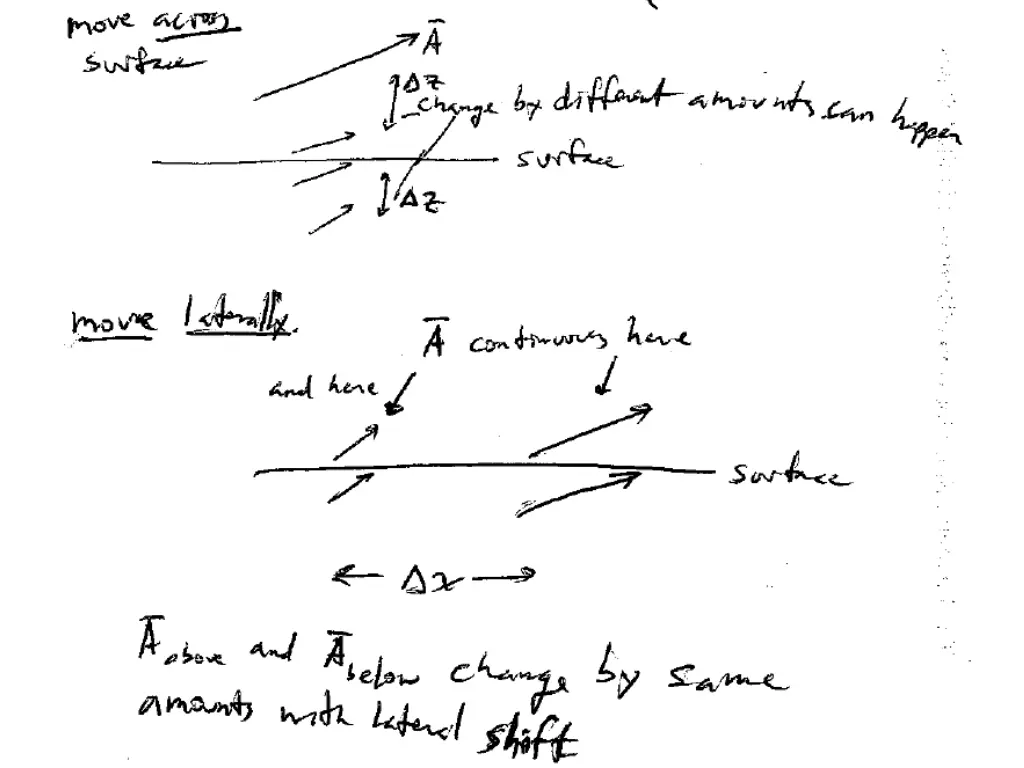 move across
surface
Ā
Δz
change by different amounts can happen
surface
Δz
move laterally.
Ā continuous here
and here
surface
← Δx →
Ā above and Ā below change by same
amounts with lateral shift